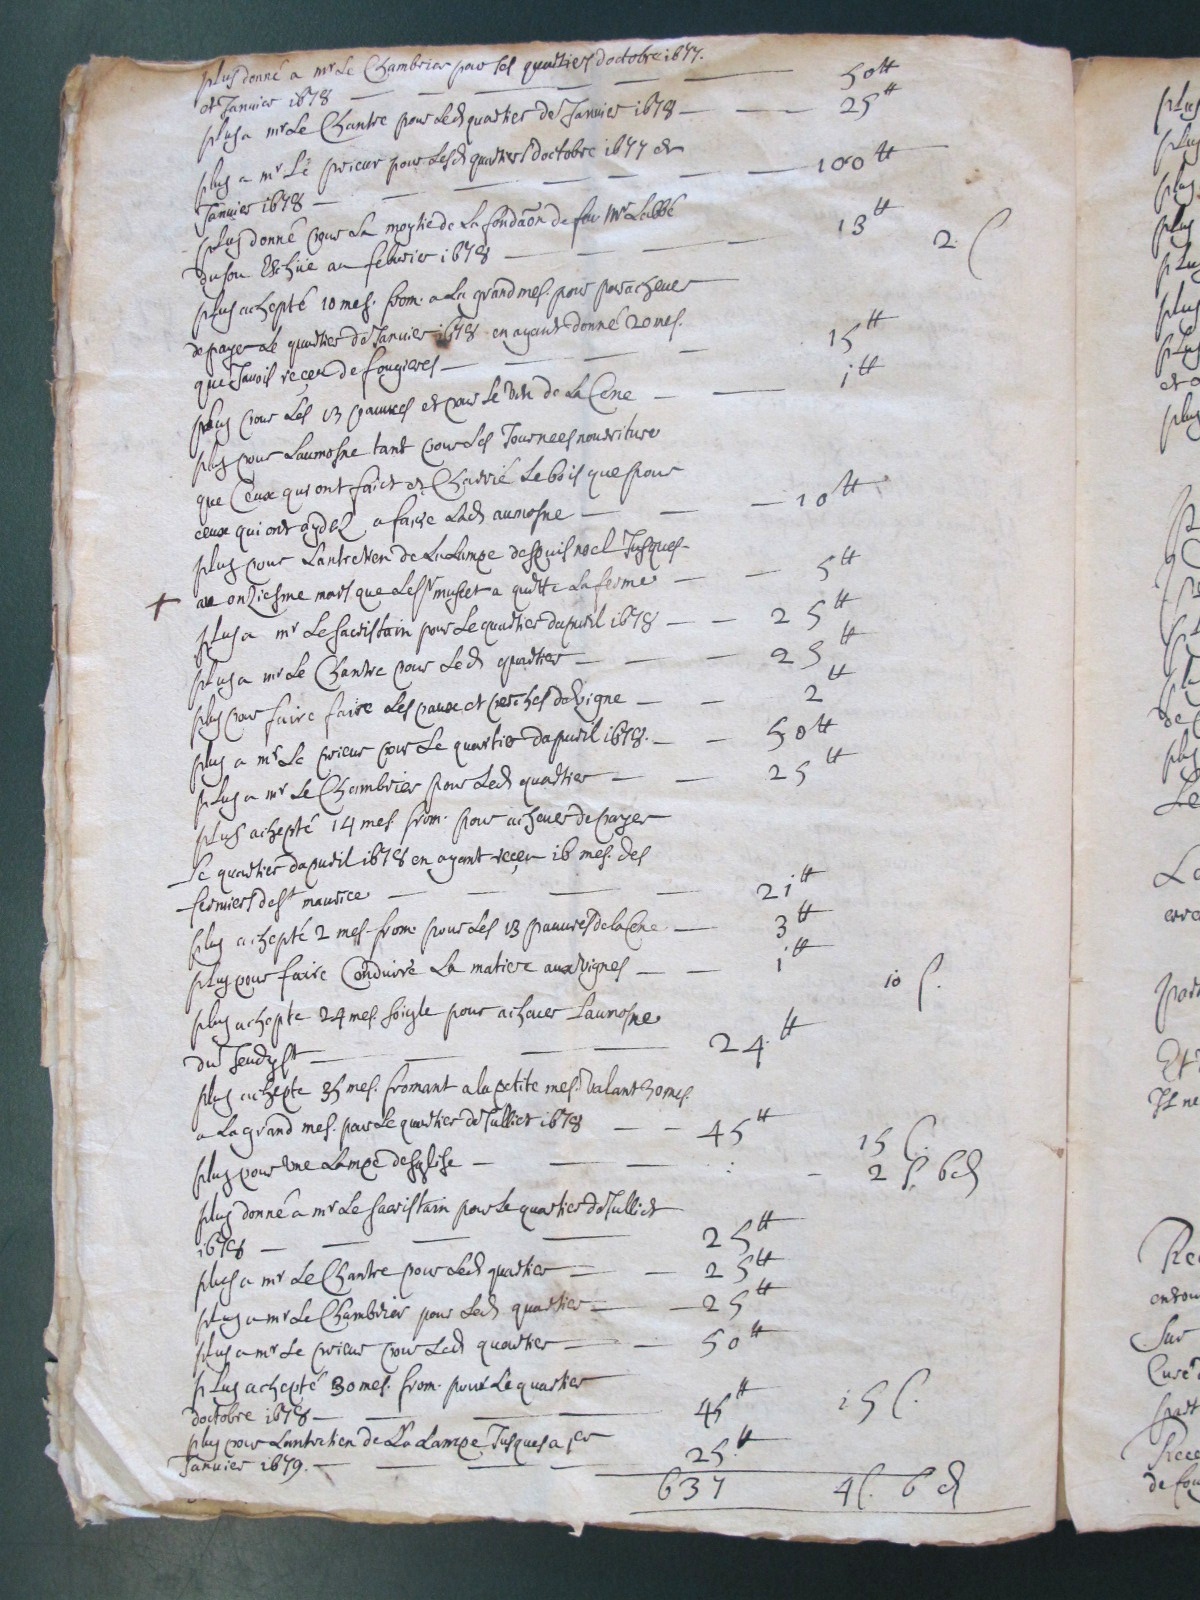 plus donné a mr Le Chambrier pour les quartiers doctobre 1677.
et Janvier 1678 — 50 tt
plus a mr Le Chantre pour led quartier de Janvier 1678 — 25 tt
plus a mr Le prieur pour lesd quartiers doctobre 1677 et
Janvier 1678 — 100 tt
plus donné pour La moytie de La fondaōn de feu Mr Labbé
du four Eschue au febvrier 1678 — 13 tt 2 s
plus achepté 10 mes. from. a La grand mes. pour parachever
de payer Le quartier de Janvier 1678 en ayant donné 20 mes.
que Javois reçeu de fougieres — 15 tt
plus pour Les 13 pauvres et pour Le vin de La Cene — 1 tt
plus pour Laumosne tant pour Les Journees nourriture
que Ceux qui ont faict et Charrié Le bois que pour
ceux qui ont aydez a faire Lad aumosne — 10 tt
plus pour Lantretien de La Lampe despuis noel Jusques
au onziesme mars que Le sr musset a quitté La ferme — 5 tt
plus a mr Le sacristain pour Le quartier dapvril 1678 — 25 tt
plus a mr Le Chantre pour Led quartier — 25 tt
plus pour faire faire Les paux et perches de vigne — 2 tt
plus a mr Le prieur pour Le quartier dapvril 1678. — 50 tt
plus a mr Le Chambrier pour Led quartier — 25 tt
plus achepté 14 mes. from. pour achever de payer
Le quartier dapvril 1678 en ayant reçeu 16 mes. des
fermiers de st maurice — 21 tt
plus achepté 2 mes. from. pour Les 13 pauvres de la Cene — 3 tt
plus pour faire Conduire La matiere aux vignes — 1 tt 10 s.
plus achepte 24 mes. soigle pour achever Laumosne
du Jeudy st — 24 tt
plus achepte 35 mes. fromant a la petite mes. valant 30 mes.
a La grand mes. pour Le quartier de Julliet 1678 — 45 tt 15 s.
plus pour une Lampe desglise — 2 s. 6 d
plus donné a mr Le sacristain pour Le quartier de Julliet
1678 — 25 tt
plus a mr Le Chantre pour Led quartier — 25 tt
plus a mr Le Chambrier pour Led quartier — 25 tt
plus a mr Le prieur pour Led quartier — 50 tt
plus achepté 30 mes. from. pour Le quartier
doctobre 1678 — 45 tt 15 s.
plus pour Lantretien de La Lampe Jusques a per
Janvier 1679. — 25 tt
637 4 s. 6 d